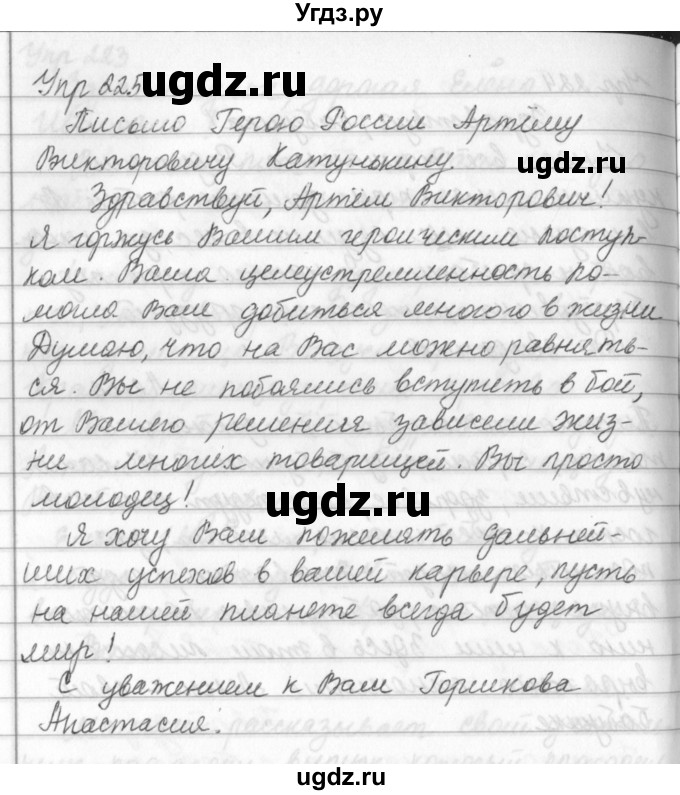 Угдз.ру
Упр 225
ugdz.ru
Письмо Герою России Артёму
Викторовичу Катунькину.
ugdz.ru
Здравствуй, Артём Викторович!
Я горжусь Вашим героическим поступ-
ком. Ваша целеустремленность по-
могла Вам добиться многого в жизни
Думаю, что на Вас можно равнять-
ся. Вы не побоялись вступить в бой,
от Вашего решения зависели жиз-
ни многих товарищей. Вы просто
молодец!
ugdz.ru
Я хочу Вам пожелать дальней-
ших успехов в вашей карьере, пусть
на нашей планете всегда будет
мир!
С уважением к Вам Горшкова
Анастасия.
ugdz.ru